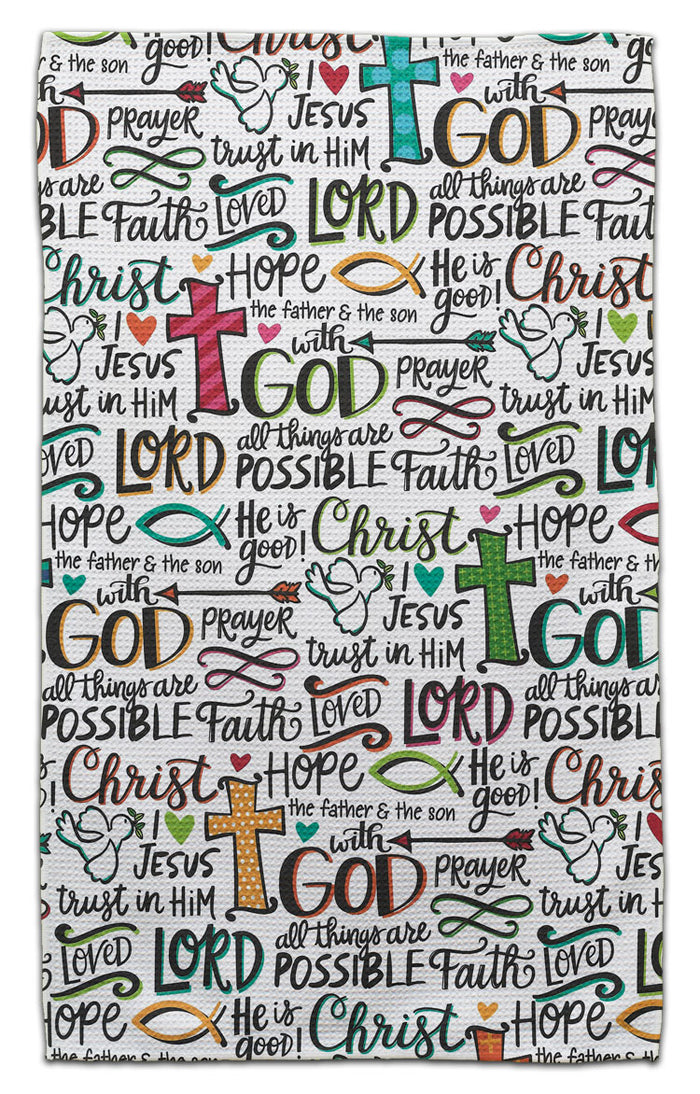 the father & the son He is good! Christ
with GOD PRAYER trust in HIM I JESUS with GOD PRAY
all things are POSSIBLE Faith LOVED LORD all things are POSSIBLE Fait
Christ HOPE He is good! Christ
the father & the son
I JESUS with GOD PRAYER I JESUS
trust in HIM trust in HIM
LOVED LORD all things are POSSIBLE Faith LOVED LORD
HOPE He is good! Christ HOPE
the father & the son the father & the son
with GOD PRAYER I JESUS with GOD
trust in HIM
all things are POSSIBLE Faith LOVED LORD all things are POSSIBL
Christ HOPE He is good! Christ
the father & the son
I JESUS with GOD PRAYER I JES
trust in HIM trust in H
LOVED LORD all things are POSSIBLE Faith LOVED LORD
HOPE He is good! Christ HOPE
the father & the son